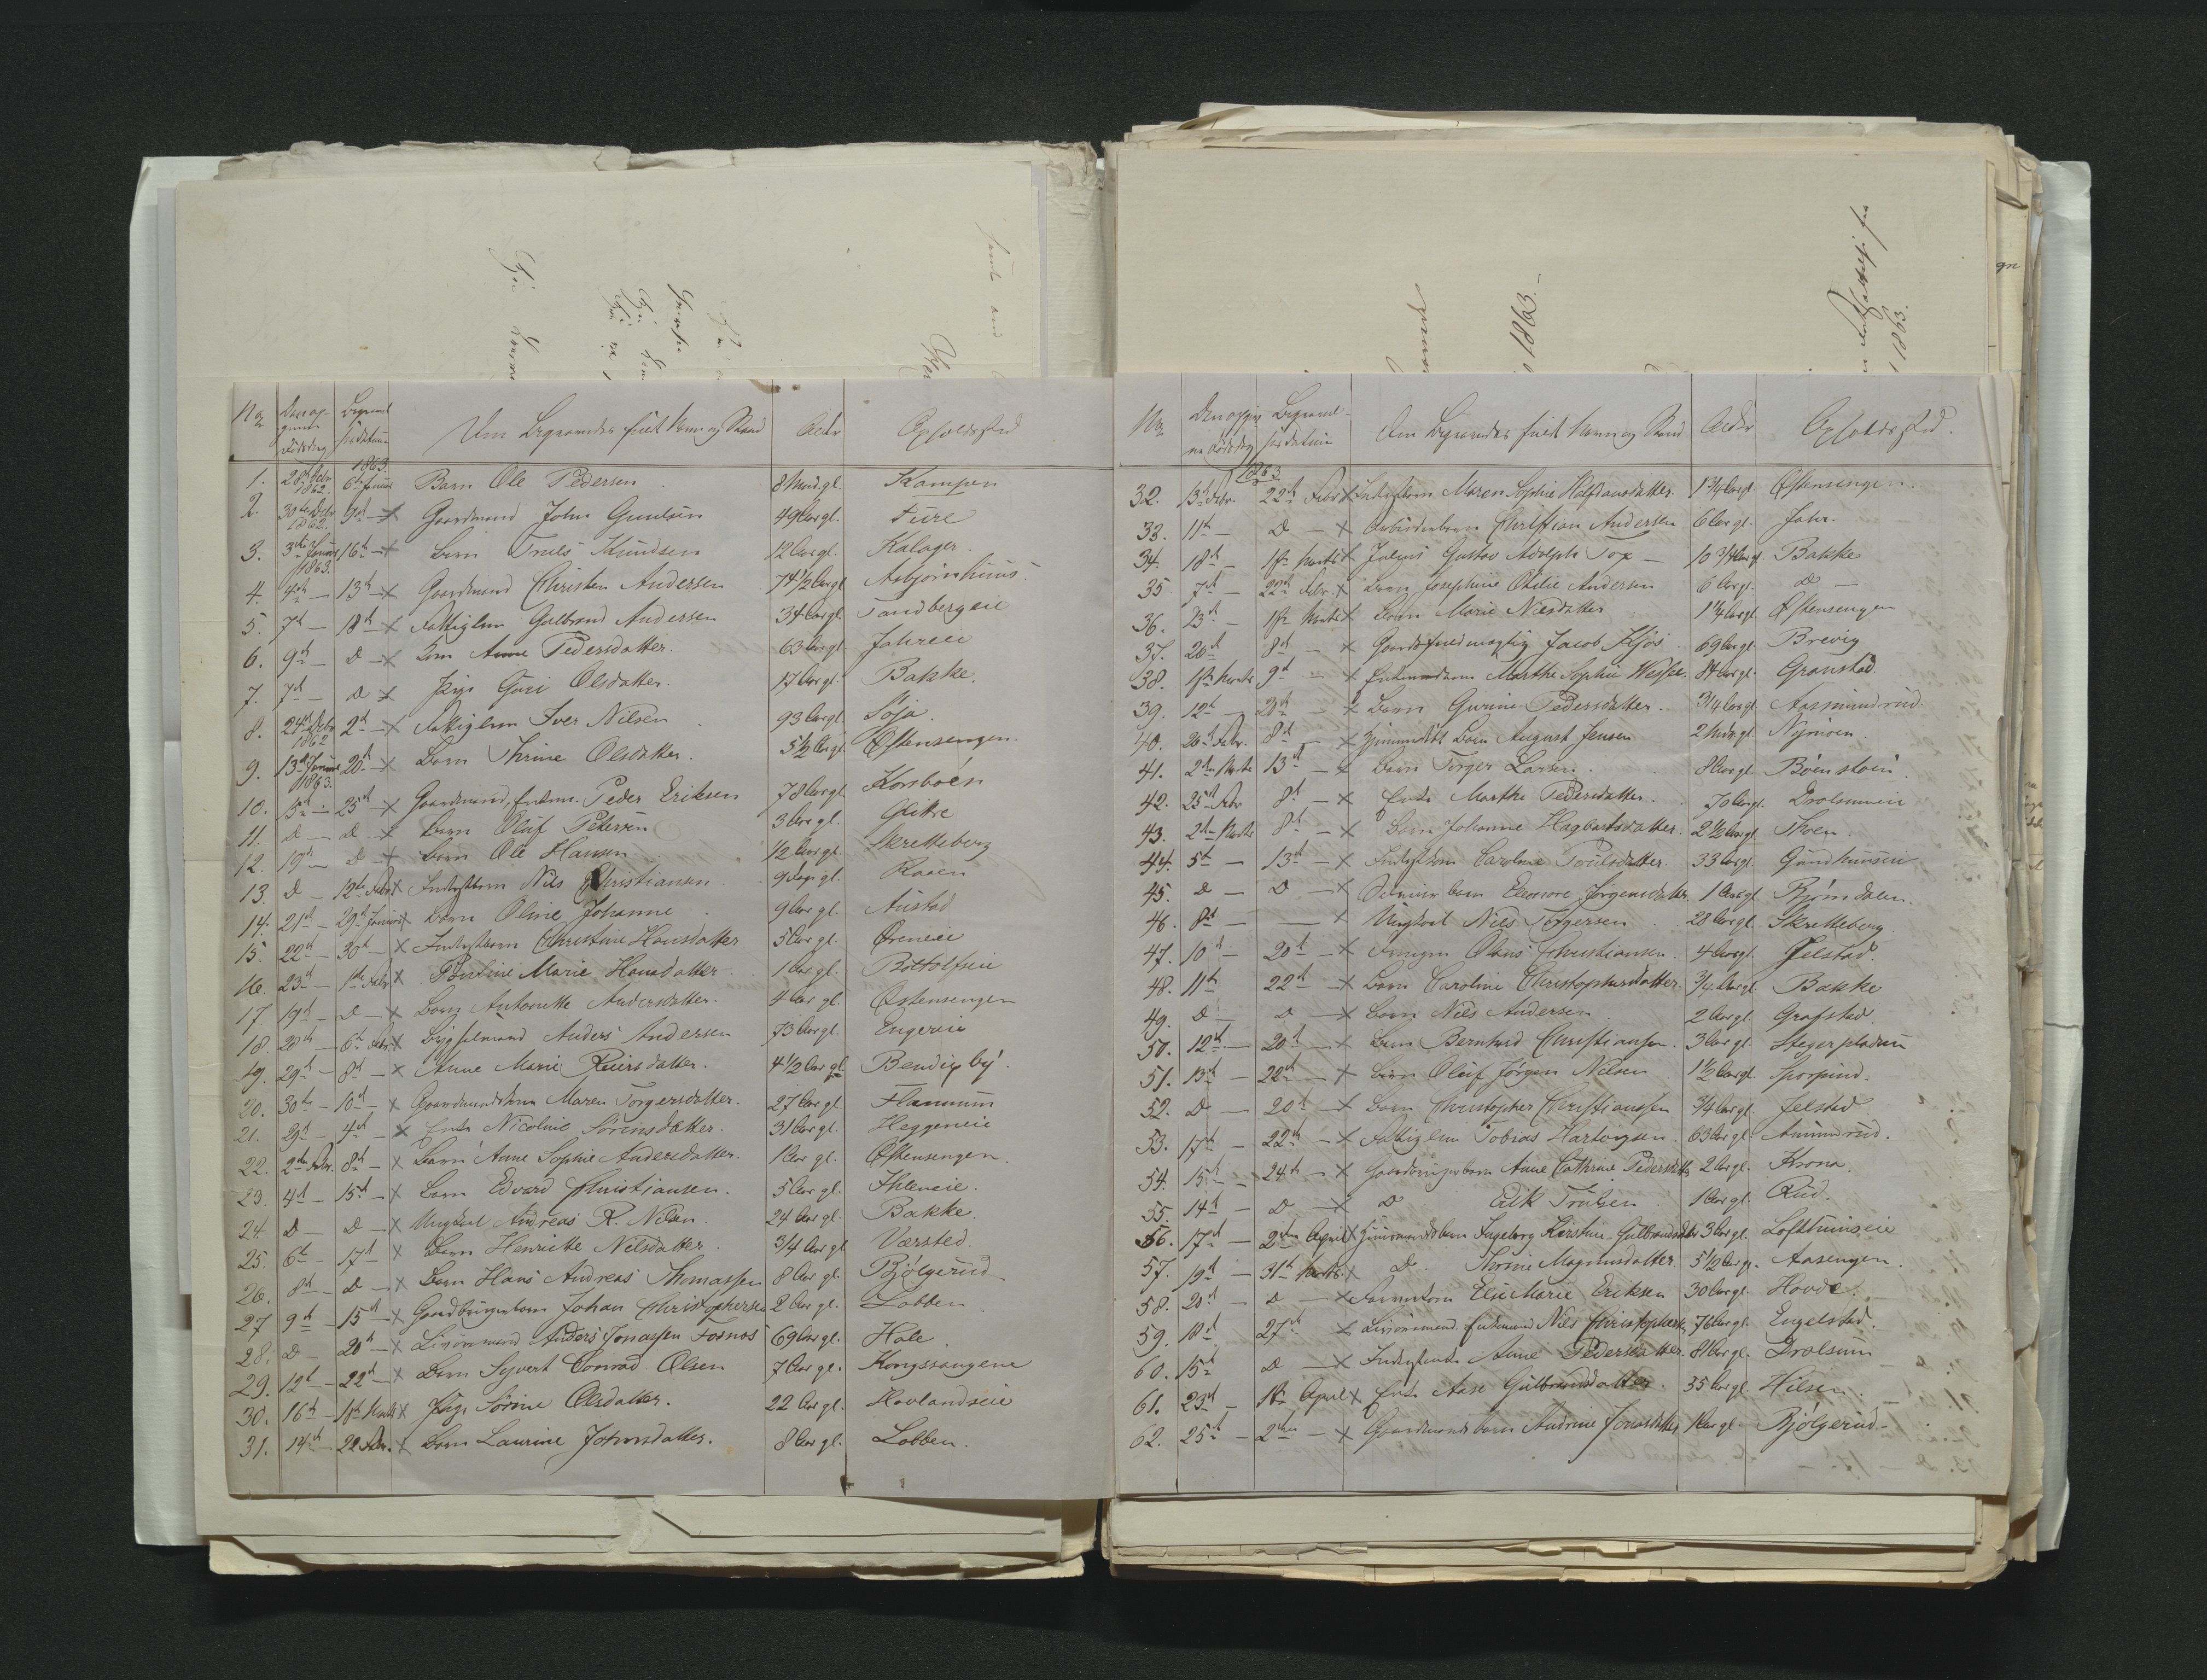 No
Den op-
givne
dødsdag
Begravel
sesdatum
Den Begravedes fulde Navn og Stand
Alder
Opholdssted
1863.
1. 28de Decbr 1862. 6te Januar Barn Ole Pedersen 8 Mnd. gl. Kampen
2. 30te Decbr 1862. 9d — x Gaardmand John Gundsen 49 Aar gl. Fure
3. 3die Januar 1863. 16th — x Barn Truls Knudsen 12 Aar gl. Kalager.
4. 4de — 13d — x Gaardmand Christen Andersen 74 1/2 Aar gl. Asbjørnhuus.
5. 7d — 18d — x Fattiglem Gulbrand Andersen 34 Aar gl. Tandbergeie
6. 9d — D — x Lem Anne Pedersdatter. 63 Aar gl. Jahreie
7. 7d — D x Pige Guri Olsdatter. 17 Aar gl. Bakke.
8. 24d Decbr 1862 2d — x Fattiglem Iver Nilsen 93 Aar gl. Søja.
9. 13d Januar 1863. 20d — x Barn Thrine Olsdatter. 5 1/2 Aar gl. Østensengen.
10. 15d — 25d — x Gaardmand, Enkem. Peder Eriksen 78 Aar gl. Korsboen
11. D — D x Barn Oluf Petersen 3 Aar gl. Gutre
12. 19d — D — x Barn Ole Hansen 1/2 Aar gl. Skretteberg
13. D — 12te Febr x Inderstbarn Nils Christiansen. 9 Dage gl. Raaen
14. 21d — 29d Januar x Barn Oline Johanne 9 Aar gl. Austad
15. 22d — 30d — x Inderstbarn Christine Hansdatter 5 Aar gl. Øreneie
16. 23d — 1ste Febr x Pauline Marie Hansdatter 1 Aar gl. Bottolfseie
17. 19d — D — x Barn Antonette Andersdatter. 4 Aar gl. Østensengen
18. 28d — 6te Febr. x Bygselmand Anders Andersen 73 Aar gl. Engereie
19. 29d — 8d — x Anne Marie Reiersdatter. 4 1/2 Aar gl. Bendixby.
20. 30te — 10d — x Gaardmandskone Maren Torgersdatter. 27 Aar gl. Flannum
21. 29d — 4d — x Enke Nicoline Sørensdatter. 31 Aar gl. Heggeneie
22. 2den Febr. 8d — x Barn Anne Sophie Andersdatter. 1 Aar gl. Østensengen.
23. 4d — 15d — x Barn Edvard Christiansen. 5 Aar gl. Ihleneie.
24. D — D — x Ungkarl Andreas R. Nilsen. 24 Aar gl. Bakke.
25. 6te — 17d x Barn Henriette Nilsdatter. 3/4 Aar gl. Værsted.
26. 8d — D — x Barn Hans Andreas Thomassen 8 Aar gl. Bjølgerud
27 9d — 15d — x Gaardbrugerbarn Johan Christophersen 2 Aar gl. Lobben.
28. D — 20d — x Livøremand Anders Jonassen Fosnes 69 Aar gl. Hole
29. 12d — 22d — x Barn Syvert Conrad Olsen 7 Aar gl. Kongssangene
30. 16d — 18d Marts x Pige Sørine Olsdatter. 22 Aar gl. Hovlandseie
31. 14d — 22 Febr. x Barn Laurine Johnsdatter. 8 Aar gl. Lobben.
No
Den opgiv
ne dødsdag
Begravel-
sesdatum
Den Begravedes fulde Navn og Stand
Alder
Opholdssted.
1863
32. 13d Febr. 22d Febr x Inderstbarn Maren Sophie Halfvansdatter. 1 3/4 Aar gl. Østensengen.
33. 11d — D — x Arbeiderbarn Christian Andersen 6 Aar gl. Jahr.
34. 18d — 1ste Marts x Julius Gustav Adolph Fox — 10 3/4 Aar gl. Bakke
35 7d — 22d Febr. x Barn Josephine Otilie Andersen 6 Aar gl. D —
36. 23d — 1ste Marts x Barn Marie Nilsdatter 1 1/4 Aar gl. Østensengen
37. 26d 8d — x Gaardsfuldmægtig Jacob Kjøs 69 Aar gl. Brevig
38. 1ste Marts 9d — x Enkemadam Marthe Sophie Wessel. 84 Aar gl. Granstad
39. 12d — 20d — x Barn Gurine Pedersdatter. 3/4 Aar gl. Aasmundrud.
40. 26d Febr. 8d — x Huusmands Barn August Jensen 2 Mndr gl. Nymoen.
41. 2den Marts 13d — x Barn Torger Larsen. 8 Aar gl. Bøenstøen.
42. 25d Febr 8d — x Enke Marthe Pedersdatter. 70 Aar gl. Drolsumeie
43. 2den Marts 8d — x Barn Johanne Hagbartsdatter. 2 1/2 Aar gl. Thoen.
44. 5d — 13d — x Inderstkone Caroline Poulsdatter. 33 Aar gl. Gundhuuseie
45. D — D — x Barn Eleonore Jørgensdatter 1 Aar gl. Bjørndalen.
46. 8d — — x Ungkarl Nils Torgersen 28 Aar gl. Skretteberg
47. 10d — 20d — x Olaus Christiansen. 4 Aar gl. Jelstad.
48. 11d 22d — x Barn Caroline Christophersdatter. 3/4 Aar gl. Bakke
49. D — D — x Barn Nils Andersen. 2 Aar gl. Grafstad.
50. 12d — 20d — x Barn Bernhard Christiansen. 3 Aar gl. Stegerpladsen
51. 13d — 22d — x Barn Oluf Jørgen Nilsen 1 1/2 Aar gl. Sporpind.
52. D — 20d — x Barn Christopher Christianssen 3/4 Aar gl. Jelstad
53. 17d — 22d — x Fattiglem Tobias Hartvigsen. 63 Aar gl. Amundrud.
54. 15d — 24d — x Gaardbrugerbarn Anne Cathrine Pedersdatter 2 Aar gl. Krona.
55. 14d — D — x D Erik Trulsen 1 Aar gl. Rud.
56. 17d — 2den April x Huusmandsbarn Ingeborg Kirstine Gulbrandsdatter 3 Aar gl. Lofthuuseie
57. 19d — 31d Marts. x D. Thrine Magnusdatter. 5 1/2 Aar gl. Aasengen.
58. 20d — D — x Elie Marie Eriksen 30 Aar gl. Hovde.
59. 18d 27d x Livøremand. Enkemand Nils Christophersen. 76 Aar gl. Engelstad.
60. 15d D — x Inderstenke Anne Pedersdatter. 81 Aar gl. Drolsum
61. 23d — 1ste April x Enke Aase Gulbrandsdatter. 35 Aar gl. Hilsen.
62. 25d — 2den — x Gaardmandsbarn Andrine Jonasdatter 1 Aar gl. Bjølgerud.
1863.—
1863.